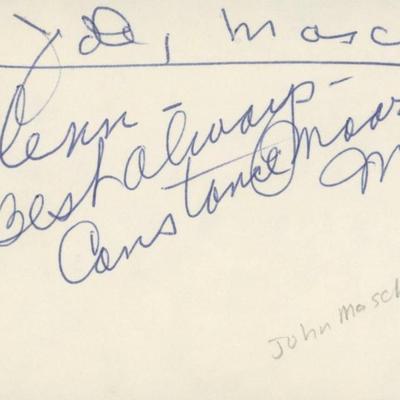 Jde, Masc
lenn -
Best always -
Constance Moor
M
John Masch